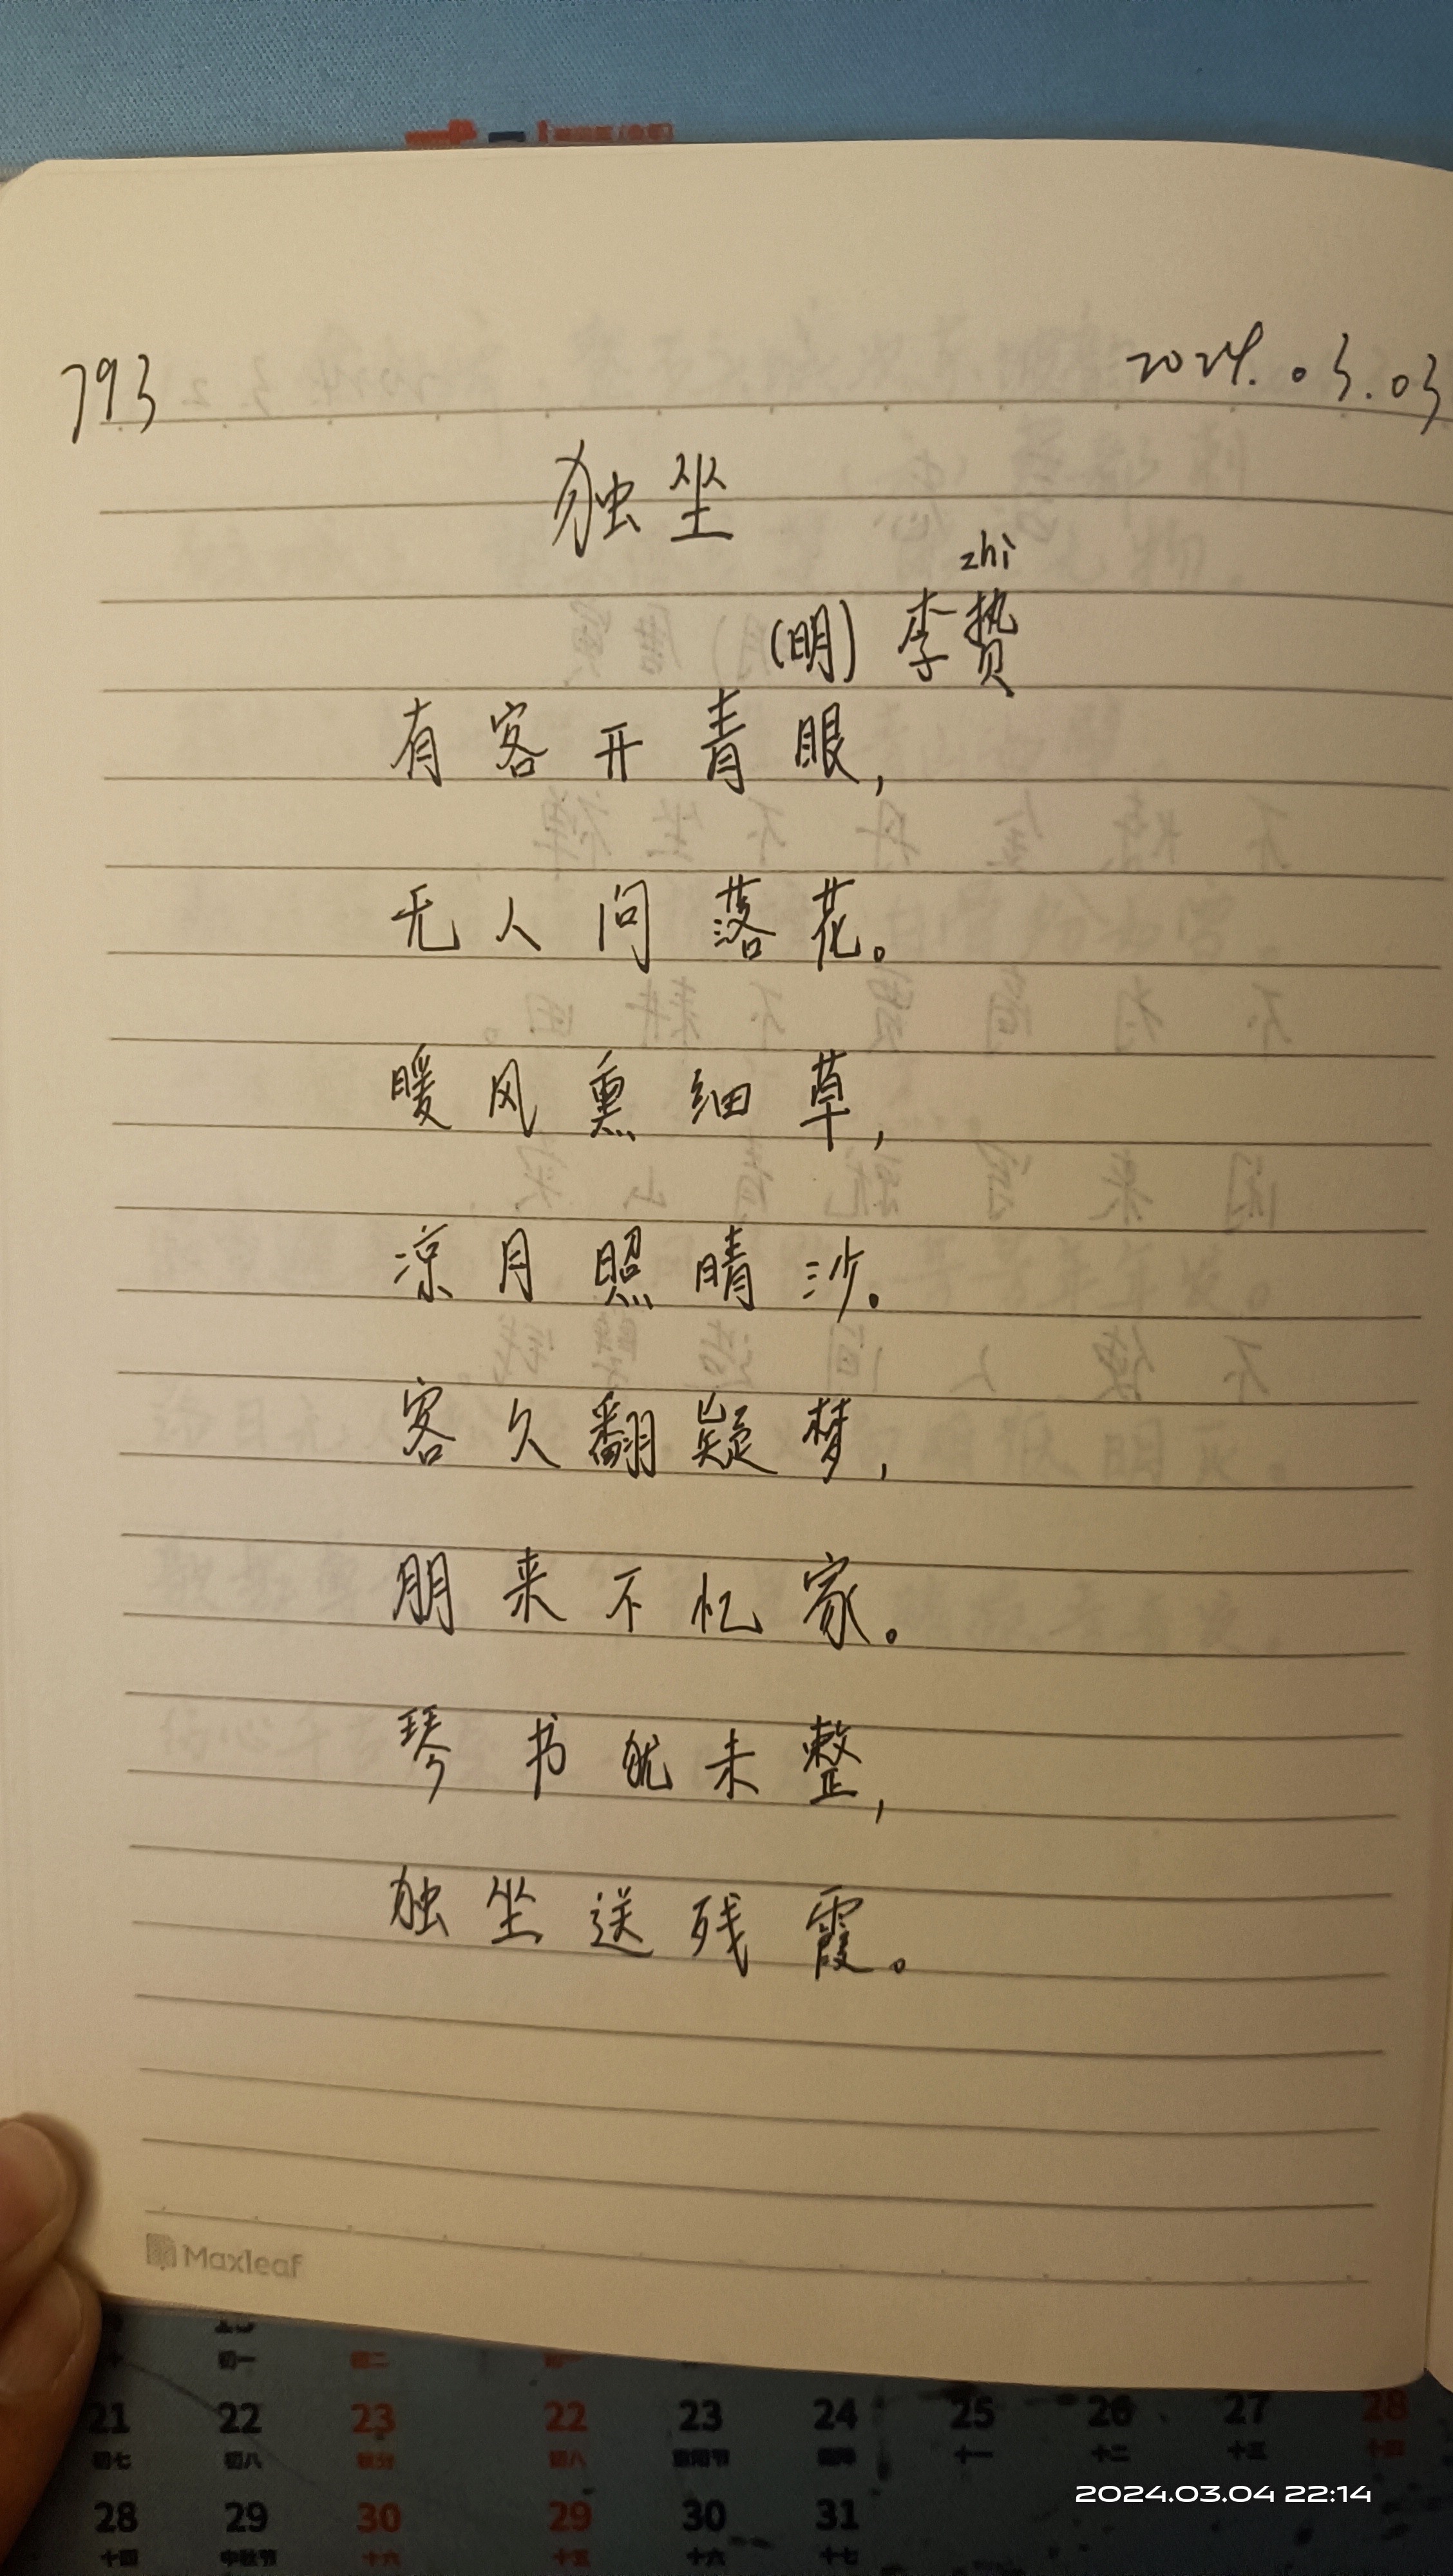 793 2024.03.03
独坐
zhi
(明) 李贽
有客开青眼，
无人问落花。
暖风熏细草，
凉月照晴沙。
客久翻疑梦，
朋来不忆家。
琴书犹未整，
独坐送残霞。
Maxleaf
21 22 23 22 23 24 25 26 27 28
初七 初八 秋分 初八 十一 十二 十三 十四
2024.03.04 22:14
28 29 30 29 30 31
十四 中秋节 十六 十五 十六 十七